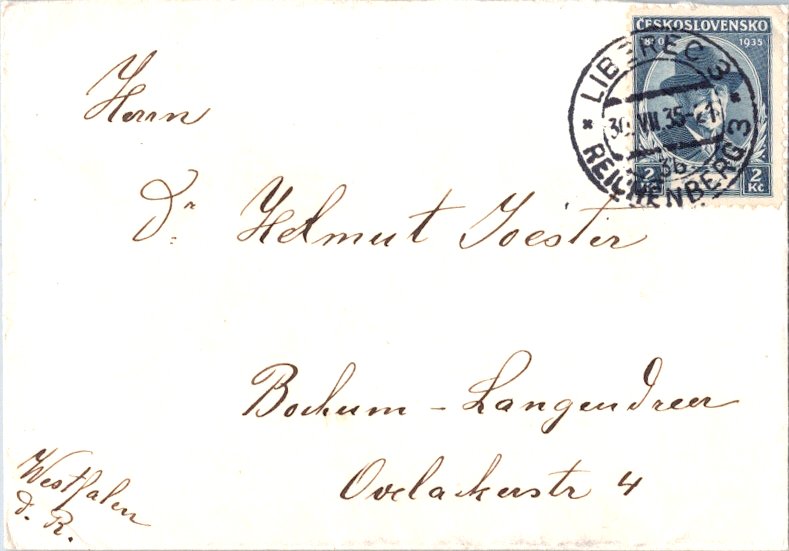 ČESKOSLOVENSKO
1935
LIBEREC 3
30.VII.35-21
36
REICHENBERG 3
2 2
Kč
Herrn
Dr. Helmut Joester
Bochum - Langendreer
Ovelackerstr 4
Westfalen
d. R.